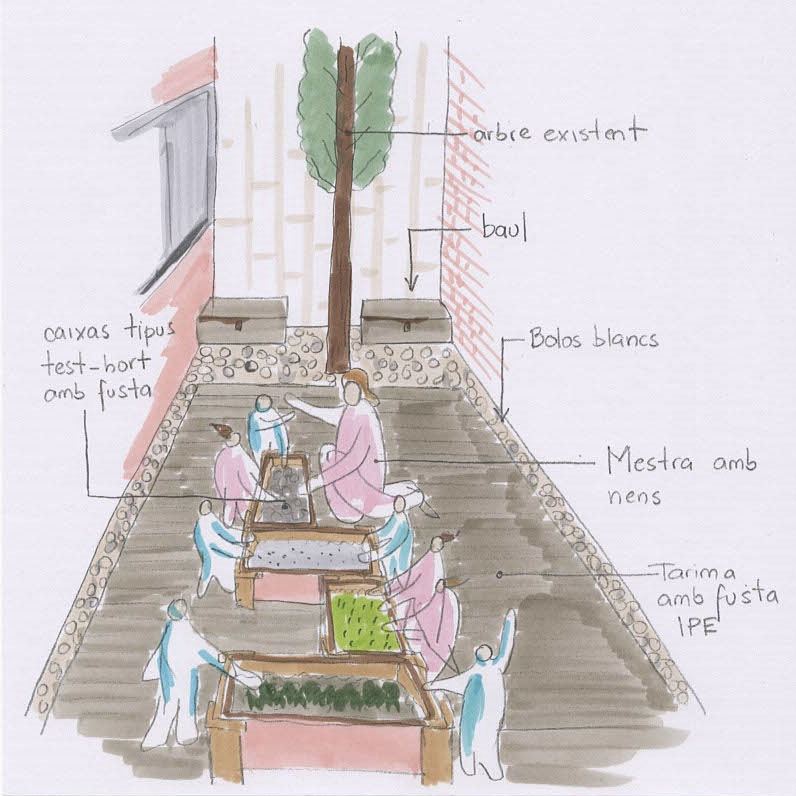 arbre existent
baul
caixas tipus
test-hort
amb fusta
Bolos blancs
Mestra amb
nens
Tarima
amb fusta
IPE